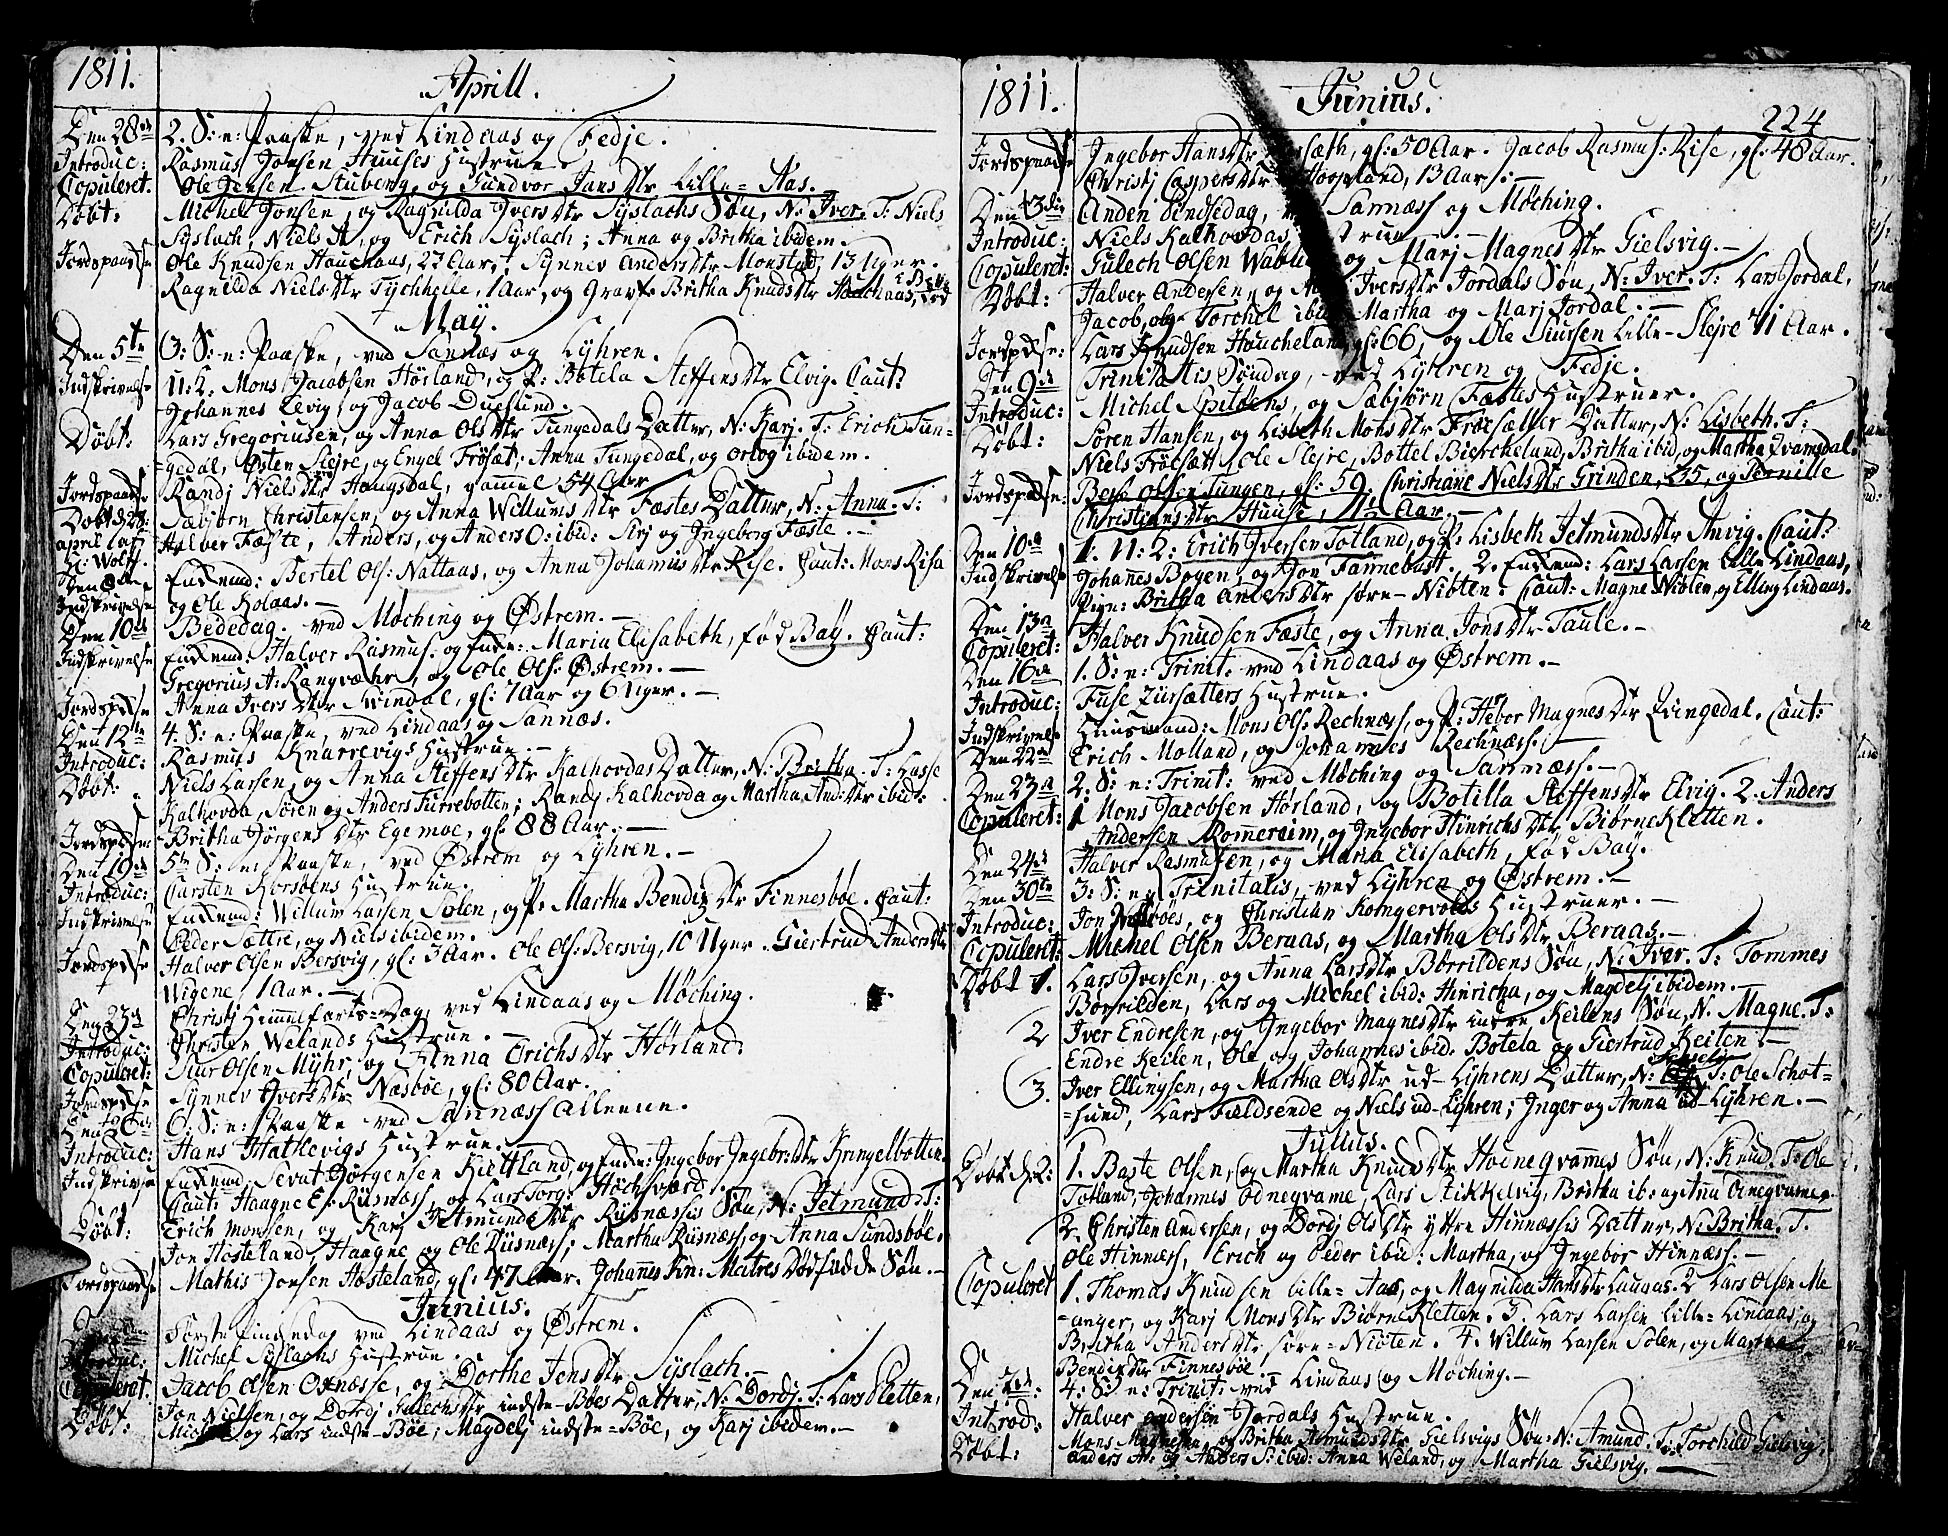 1811. Aprill.
Den 28de 2. S: e: Paaske, ved Lindaas og Fedje.
Introduc: Rasmus Jonsen Huuses Hustrue.
Copuleret. Ole Jensen Stuberg, og Gundvor Jans Dtr Lille=Aas.
Døbt: Michel Jonsen, og Raghilda Ivers Dtr Syslachs Søn, N: Iver. T: Niels
Syslach, Niels A, og Erich Syslach; Anna og Britha ibidem.
Jordspaadse Ole Knudsen Hauchaas, 27 Aar, Synnev Anders Dtr Monstad, 13 Uger.
Ragnilda Niels Dtr Tychheile, 1 Aar, og Britha Knuds Dtr Hauchaas,
May.
Den 5te 3: S: e: Paaske, ved Sannæs og Lyhren.
Indskrivelse U: K. Mons Jacobsen Hørland, og P: Botela Steffens Dtr Elvig. Caut:
Johannes Elvig, og Jacob Duesund.
Døbt: Lars Gregoriusen, og Anna Ols Dtr Tungedals Datter, N: Karj. T: Erich Tun=
=gedal, Østen Slejre, og Engel Frøsæt; Anna Tungedal, og Orlog ibidem.
Jordspaadse Randj Niels Dtr Hougsdal, gammel 54 Aar
Døbt d 28 Sæbjørn Christensen, og Anna Willums Dtr Fæstes Datter, N: Anna. T:
april af Halver Fæste, Anders, og Anders O: ibid: Sirj og Ingeborg Fæste.
Hr: Wolff.
Den 8de Enkemd: Bertel Ols: Nattaas, og Anna Johannis Dtr Rise. Caut: Mons Risa
Indskrivelse og Ole Kolaas.
Den 10de Bededag. ved Møching og Østrem.
Indskrivelse Enkemd: Halver Rasmus: og Enke: Maria Elisabeth, fød Baÿ. Caut:
Gregorius A: Rangvæhr, og Ole Ols: Østrem.
Jordspdse Anna Ivers Dtr Svindal, gl: 7 Aar og 6 Uger.
Den 12te 4. S: e: Paaske, ved Lindaas og Sannæs.
Introduc: Rasmus Knarrevigs Hustrue.
Døbt: Niels Larsen, og Anna Steffens Dtr Kalhovdas Datter, N: Britha. T: Lasse
Kalhovda, Søren og Anders Furrebotten; Randj Kalhovda og Martha And: Dtr ibid:
Jordspdse: Britha Jørgens Dtr Egemoe, gl: 88 Aar.
Den 19de 5te S: e: Paaske, ved Østrem og Lyhren.
Introduc: Carsten Korsøens Hustrue.
Indskrivelse Enkemd: Willum Larsen Solen, og P: Martha Bendix Dtr Finnesbøe. Caut:
Peder Sættre, og Niels ibidem.
Jordspdse Halver Olsen Bersvig, gl: 3 Aar. Ole Ols: Bersvig, 10 Uger. Giertrud Anders Dtr
Wigene 1 Aar.
Den 23de Christj Himmelfarts=Dag, ved Lindaas og Møching.
Introduc: Christen Welands Hustrue.
Copuleret: Siur Olsen Myhr, og Anna Erichs Dtr Hørland:
Jordspdse Synnev Ivers Dtr Næsbøe, gl: 80 Aar.
Den 26de 6: S: e: Paaske ved Sannæss alleene.
Introduc: Hans Hatlevigs Hustrue.
Indskrivse Enkemd Sevat Jørgensen Kiettland, og Enke: Ingebor Ingebr: Dtr Kringelbotten.
Caut: Haagne E: Risnæss, og Lars Torg: Høchsværd.
Døbt: Erich Monsen, og Karj Jetmunds Dtr Risnæssis Søn, N: Jetmund. T:
Jon Hosteland, Haagne og Ole Riisnæs; Martha Riisnæss, og Anna Sundsbøe.
Jordspaadse Mathis Jonsen Hosteland, gl: 47 Aar. Johannes Fin: Matres Dødfødde Søn.
Junius.
Første Pindsedag ved Lindaas og Østrem.
Introduc: Michel Syslachs Hustrue.
Copuleret. Jacob Olsen Oxnæsse, og Dorthe Jens Dtr Syslach.
Døbt: Jon Nielsen, og Dordj Gulechs Dtr indste-Bøes Datter, N: Dordj. T: Lars Kletten,
Michel og Lars indste-Bøe, Magdelj indste=Bøe, og Karj ibidem.
1811. Junius. 224
Jordspaadse Ingebor Hans Dtr sæth, gl: 50 Aar. Jacob Rasmus: Rise, gl: 48 Aar.
Christj Caspers Dtr Hopland, 13 Aar:
Den 3die Anden Pindsedag, Sannæss og Møching.
Introduc: Niels Kalhovdas Hustrue
Copuleret: Gulech Olsen og Marj Magnes Dtr Gielsvig.
Døbt: Halver Andersen, og Ivers Dtr Jordals Søn, N: Iver. T: Lars Jordal,
Jacob, og Torchel ibid: Martha og Marj Jordal.
Jordspdse: Lars Knudsen Haucheland, gl: 66, og Ole Siursen Lille-Slejre 71 Aar.
Den 9de Trinitatis Søndag, ved Lyhren og Fedje.
Introduc: Michel Spildens, og Sæbjørn Fæstes Hustruer.
Døbt: Søren Hansen, og Lisbeth Mons Dtr Frøesætter Datter, N: Lisbeth. T:
Niels Frøesætt, Ole Slejre, Bottel Biercheland, Britha ibid, og Martha Qvamsdal.
Jordspdse: Berle Olsen Tungen, gl: 59. Christiane Niels Dtr Grinden, 35, og Pernille
Christians Dtr Huuse, 1½ Aar.
Den 10de 1. U: K: Erich Iversen Totland, og P: Lisbeth Jetmunds Dtr Anvig. Caut:
Indskrivelse Johannes Bogen, og Jon Fannebost. 2. Enkemd: Lars Larsen Lille Lindaas,
Pige: Britha Anders Dtr søre-Nioten. Caut: Magne Nioten, og Elling Lindaas.
Den 13de
Copuleret: Halver Knudsen Fæste, og Anna Jons Dtr Taule.
Den 16de 1. S: e: Trinit: ved Lindaas og Østrem.
Introduc: Fuse Zursætters Hustrue.
Indskrivelse Huusmand: Mons Ols: Rechnæss, og P: Hebor Magnes Dtr Qvingedal. Caut:
Den 22de Erich Molland, og Johannes Rechnæss.
Den 23de 2. S: e: Trinit: ved Møching og Sannæss.
Copuleret: 1 Mons Jacobsen Hørland, og Botilla Steffens Dtr Elvig. 2. Anders
Andersen Romereim, og Ingebor Hinrichs Dtr Biørnekletten.
Den 24de Halver Rasmusen, og Maria Elisabeth, fød Baÿ.
Den 30te 3: S: e: Trinitatis, ved Lyhren og Østrem.
Introduc: Jon og Christian Kongervolds Hustruer.
Copuleret: Michel Olsen Beraas, og Martha Ols Dtr Beraas.
Døbt 1. Lars Iversen, og Anna Lars Dtr Borrildens Søn, N: Iver. T: Tommes
Borrilden, Lars og Michel ibid: Hinricha, og Magdelj ibidem.
2 Iver Endresen, og Ingebor Magnes Dtr indre Keilens Søn, N. Magne. T:
Endre Keilen, Ole og Johannes ibid: Botela og Giertrud Keilen
3. Iver Ellingsen, og Martha Ols Dtr ud-Lyhrens Datter, N: T: Ole Schot=
=sund, Lars Fieldsende og Niels ud-Lyhren; Inger og Anna ud-Lyhren.
Julius.
Døbt d 2: 1. Baste Olsen, og Martha Knuds Dtr Hoenegvames Søn, N: Knud. T: Ole
Totland, Johannes Odnegvame, Lars Stikkelvig, Britha ib: og Anna Odnegvame.
2. Christen Andersen, og Dordj Ols Dtr ytre Hinnæssis Datter, N: Britha. T.
Ole Hinnæss, Erich og Peder ibid: Martha, og Ingebor Hinnæss.
Copuleret 1. Thomas Knudsen Lille=Aas, og Magnilda Hans Dtr Lauaas. 2 Lars Olsen Me
=anger, og Karj Mons Dtr Biørnekletten. 3. Lars Larsen Lille=Lindaas, og
Britha Anders Dtr søre=Nioten. 4. Willum Larsen Solen, og Martha
Bendix Dtr Finnesbøe
Den 7de: 4. S: e: Trinit: ved Lindaas og Møching.
Introd: Halver Andersen Jordals Hustrue.
Døbt: Mons Magnesen, og Britha Asmunds Dtr Gielsvigs Søn: N: Amund. T: Torchild Gielsvig,
Anders A: og Anders S: ibid: Anna Weland, og Martha Gielsvig.